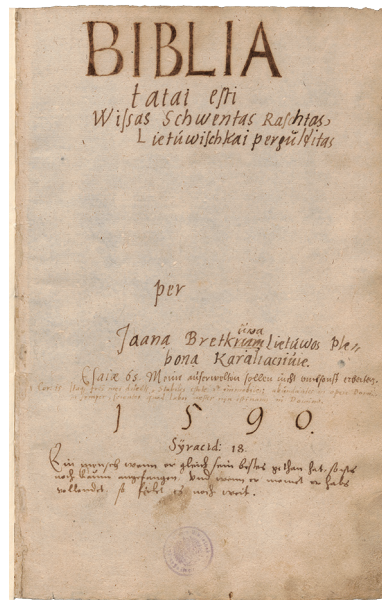 BIBLIA
tatai eſti
Wiſsas Schwentas Raſchtas,
Lietúwiſchkai pergulditas
per
úna
Jaana Bretkunam Lietúwos Ple-
bona Karaliaciúie.
Eſaiæ 65. Meine außerwelten ſollen nicht umbſonſt erbeiten.
1 5 9 0.
Sÿracid: 18.
Ein mensch wann er gleich ſein beſtes gethan hat, ſo iſts
noch kaum angefangen, Und wenn er meinet er habs
vollendet, ſo feilet es noch weit.